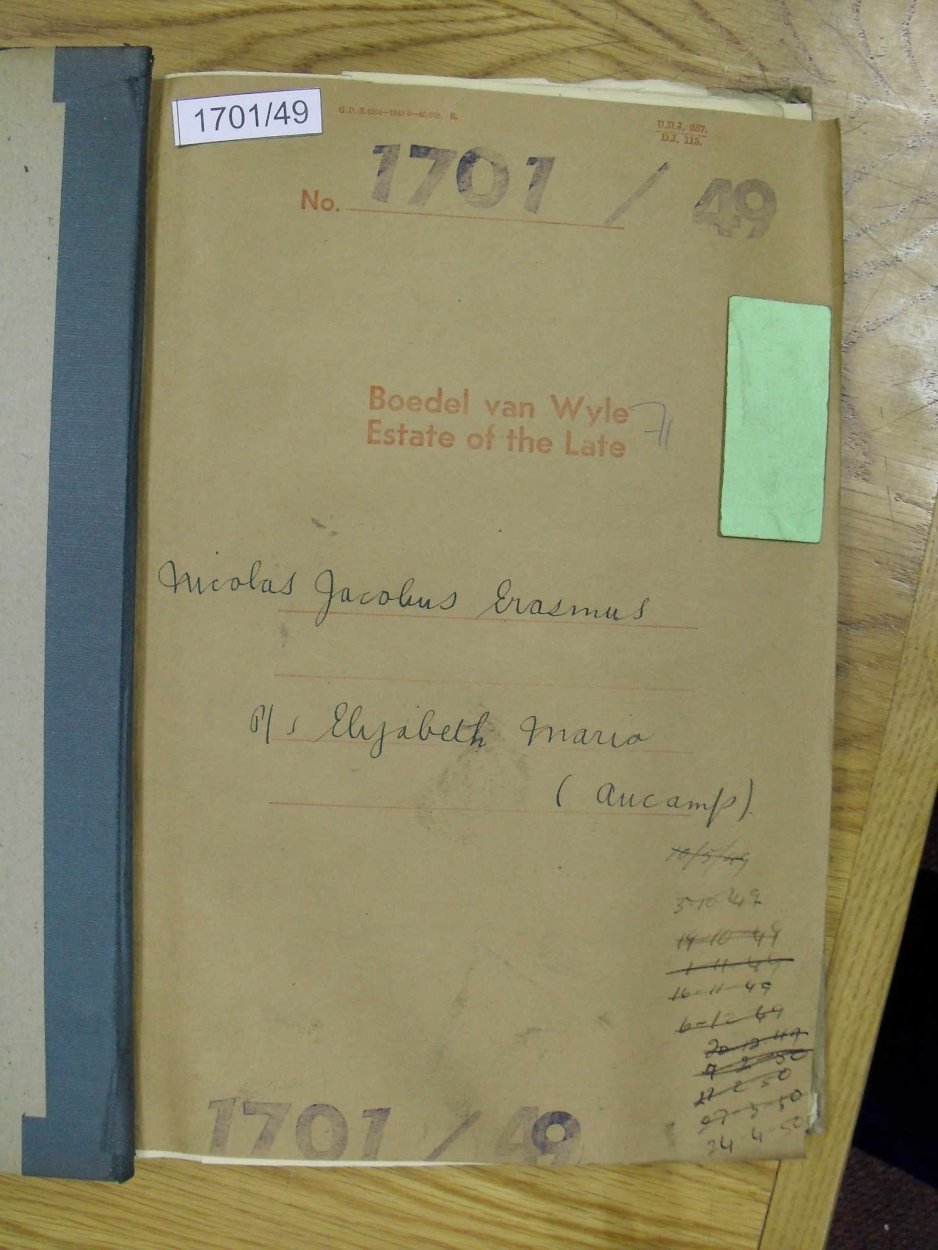 1701/49
U.D.J. 287.
D.J. 113.
No. 1701 / 49
Boedel van Wyle
Estate of the Late
Nicolas Jacobus Erasmus
P/s Elizabeth Maria
(Aucamp).
10/5/49
3-10-49
19-10-49
1-11-49
16-11-49
6-12-49
20-12-49
7-2-50
27-3-50
24-4-50
1701 / 49